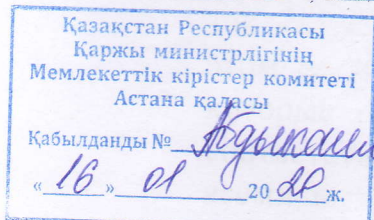 Қазақстан Республикасы
Қаржы министрлігінің
Мемлекеттік кірістер комитеті
Астана қаласы
Қабылданды №
«16» 01 2020 ж.